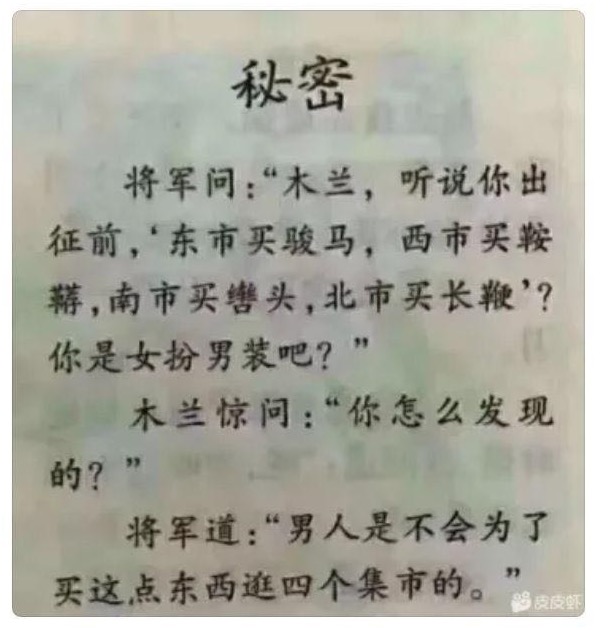 秘密
将军问：“木兰，听说你出
征前，‘东市买骏马，西市买鞍
鞯，南市买辔头，北市买长鞭’？
你是女扮男装吧？”
木兰惊问：“你怎么发现
的？”
将军道：“男人是不会为了
买这点东西逛四个集市的。”
皮皮虾